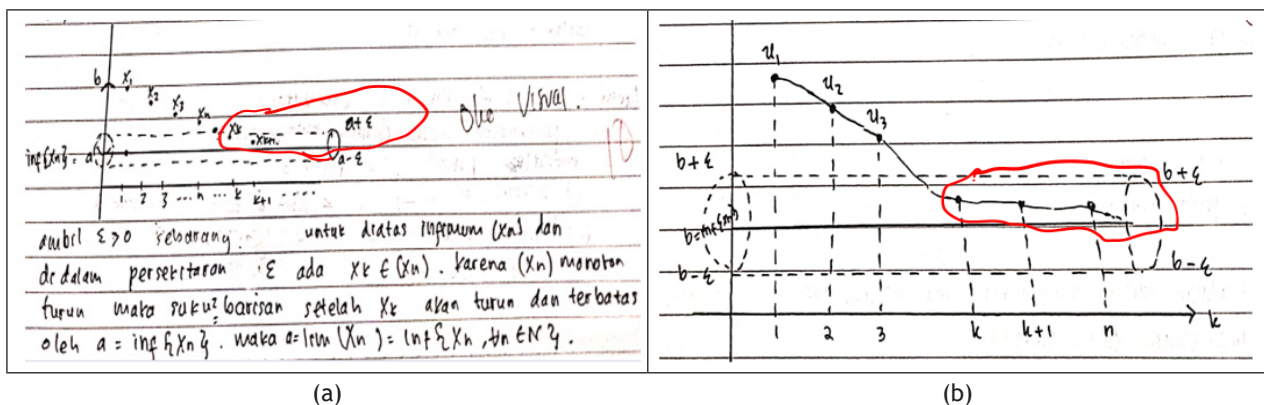 b x₁
x₂
x₃
xₙ
xₖ
xₖ₊₁
a+ε
Oke Visual.
10
inf{xₙ} = a
a-ε
1 2 3 ... n ... k k+1
ambil ε>0 sebarang. untuk diatas infimum (xₙ) dan
di dalam persekitaran ε ada xₖ ∈ (xₙ). karena (xₙ) monoton
turun maka suku² barisan setelah xₖ akan turun dan terbatas
oleh a = inf{xₙ}. maka a=lim (xₙ) = inf{xₙ, ∀n ∈ N}.
(a)
u₁
u₂
u₃
b+ε
b+ε
b-ε
b-ε
1 2 3 k k+1 n k
(b)